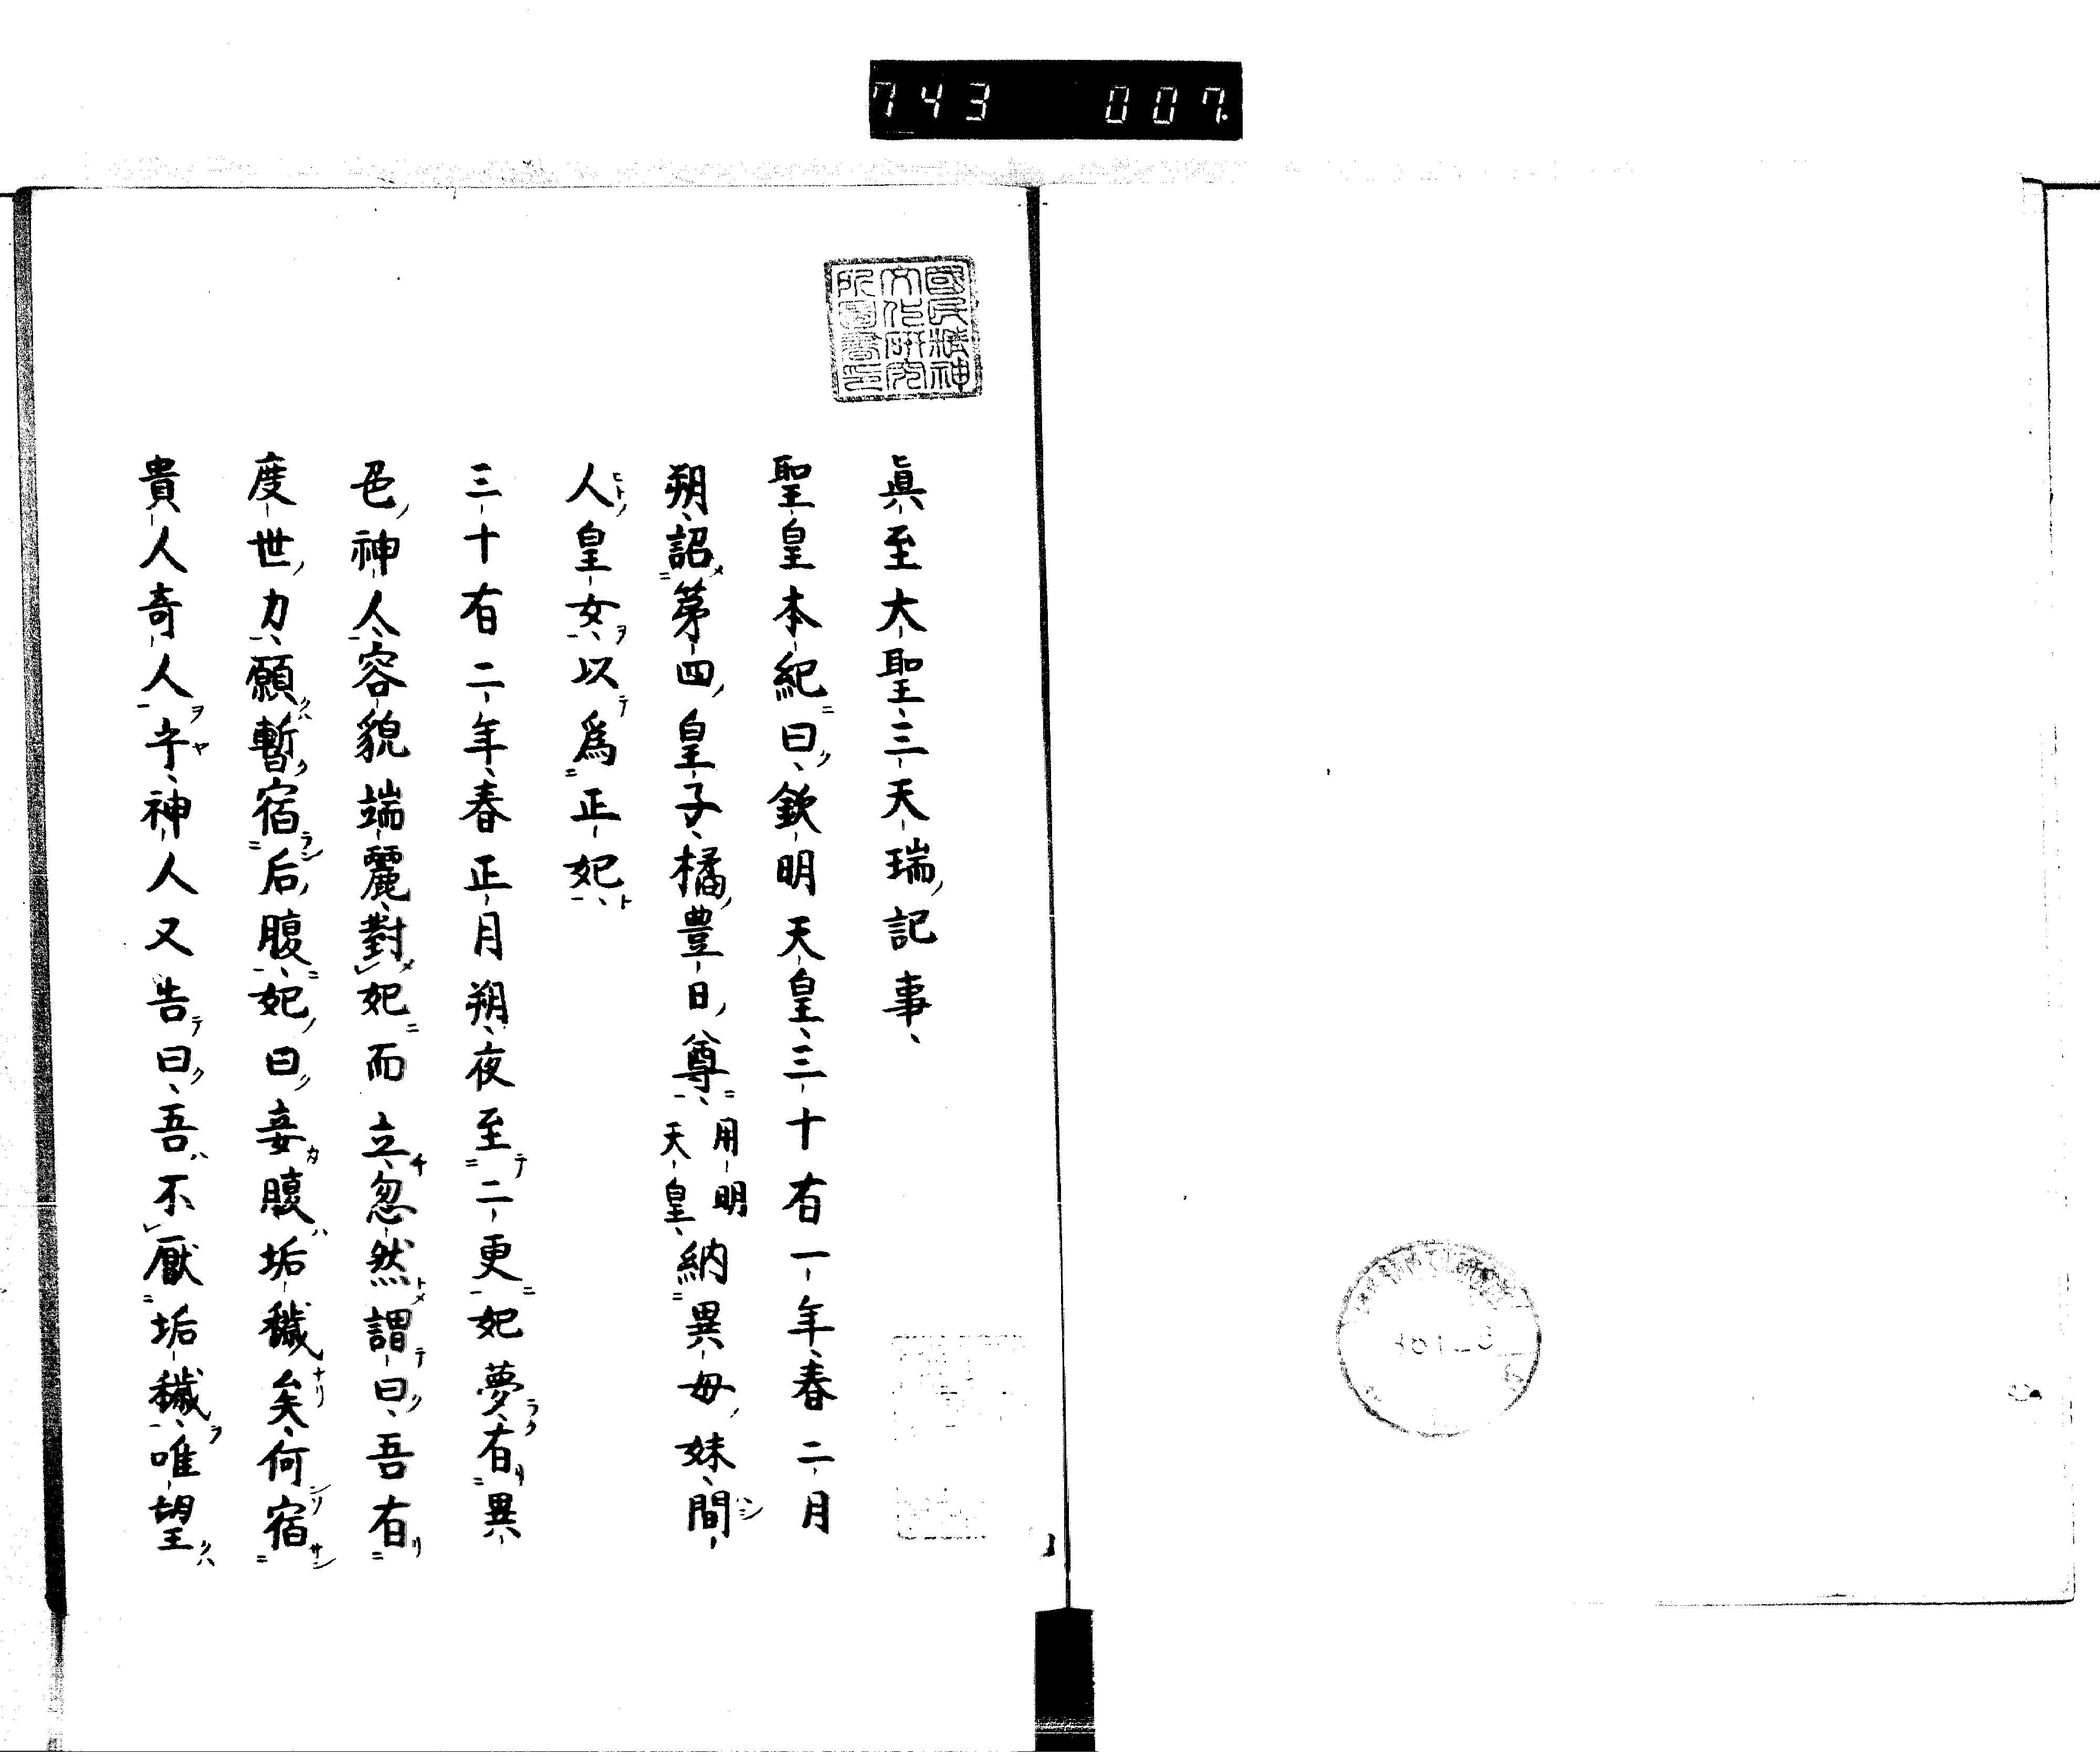 743 007
國民精神
文化研究
所圖書印
眞至大聖三天瑞記事
聖皇本紀曰欽明天皇三十有一年春二月
朔詔第四皇子橘豊日尊用明天皇納異母妹間
人皇女以爲正妃
三十有二年春正月朔夜至二更妃夢有異
色神人容貌端麗對妃而立忽然謂曰吾有
度世力願暫宿后腹妃曰妾腹垢穢矣何宿
貴人奇人乎神人又告曰吾不厭垢穢唯望